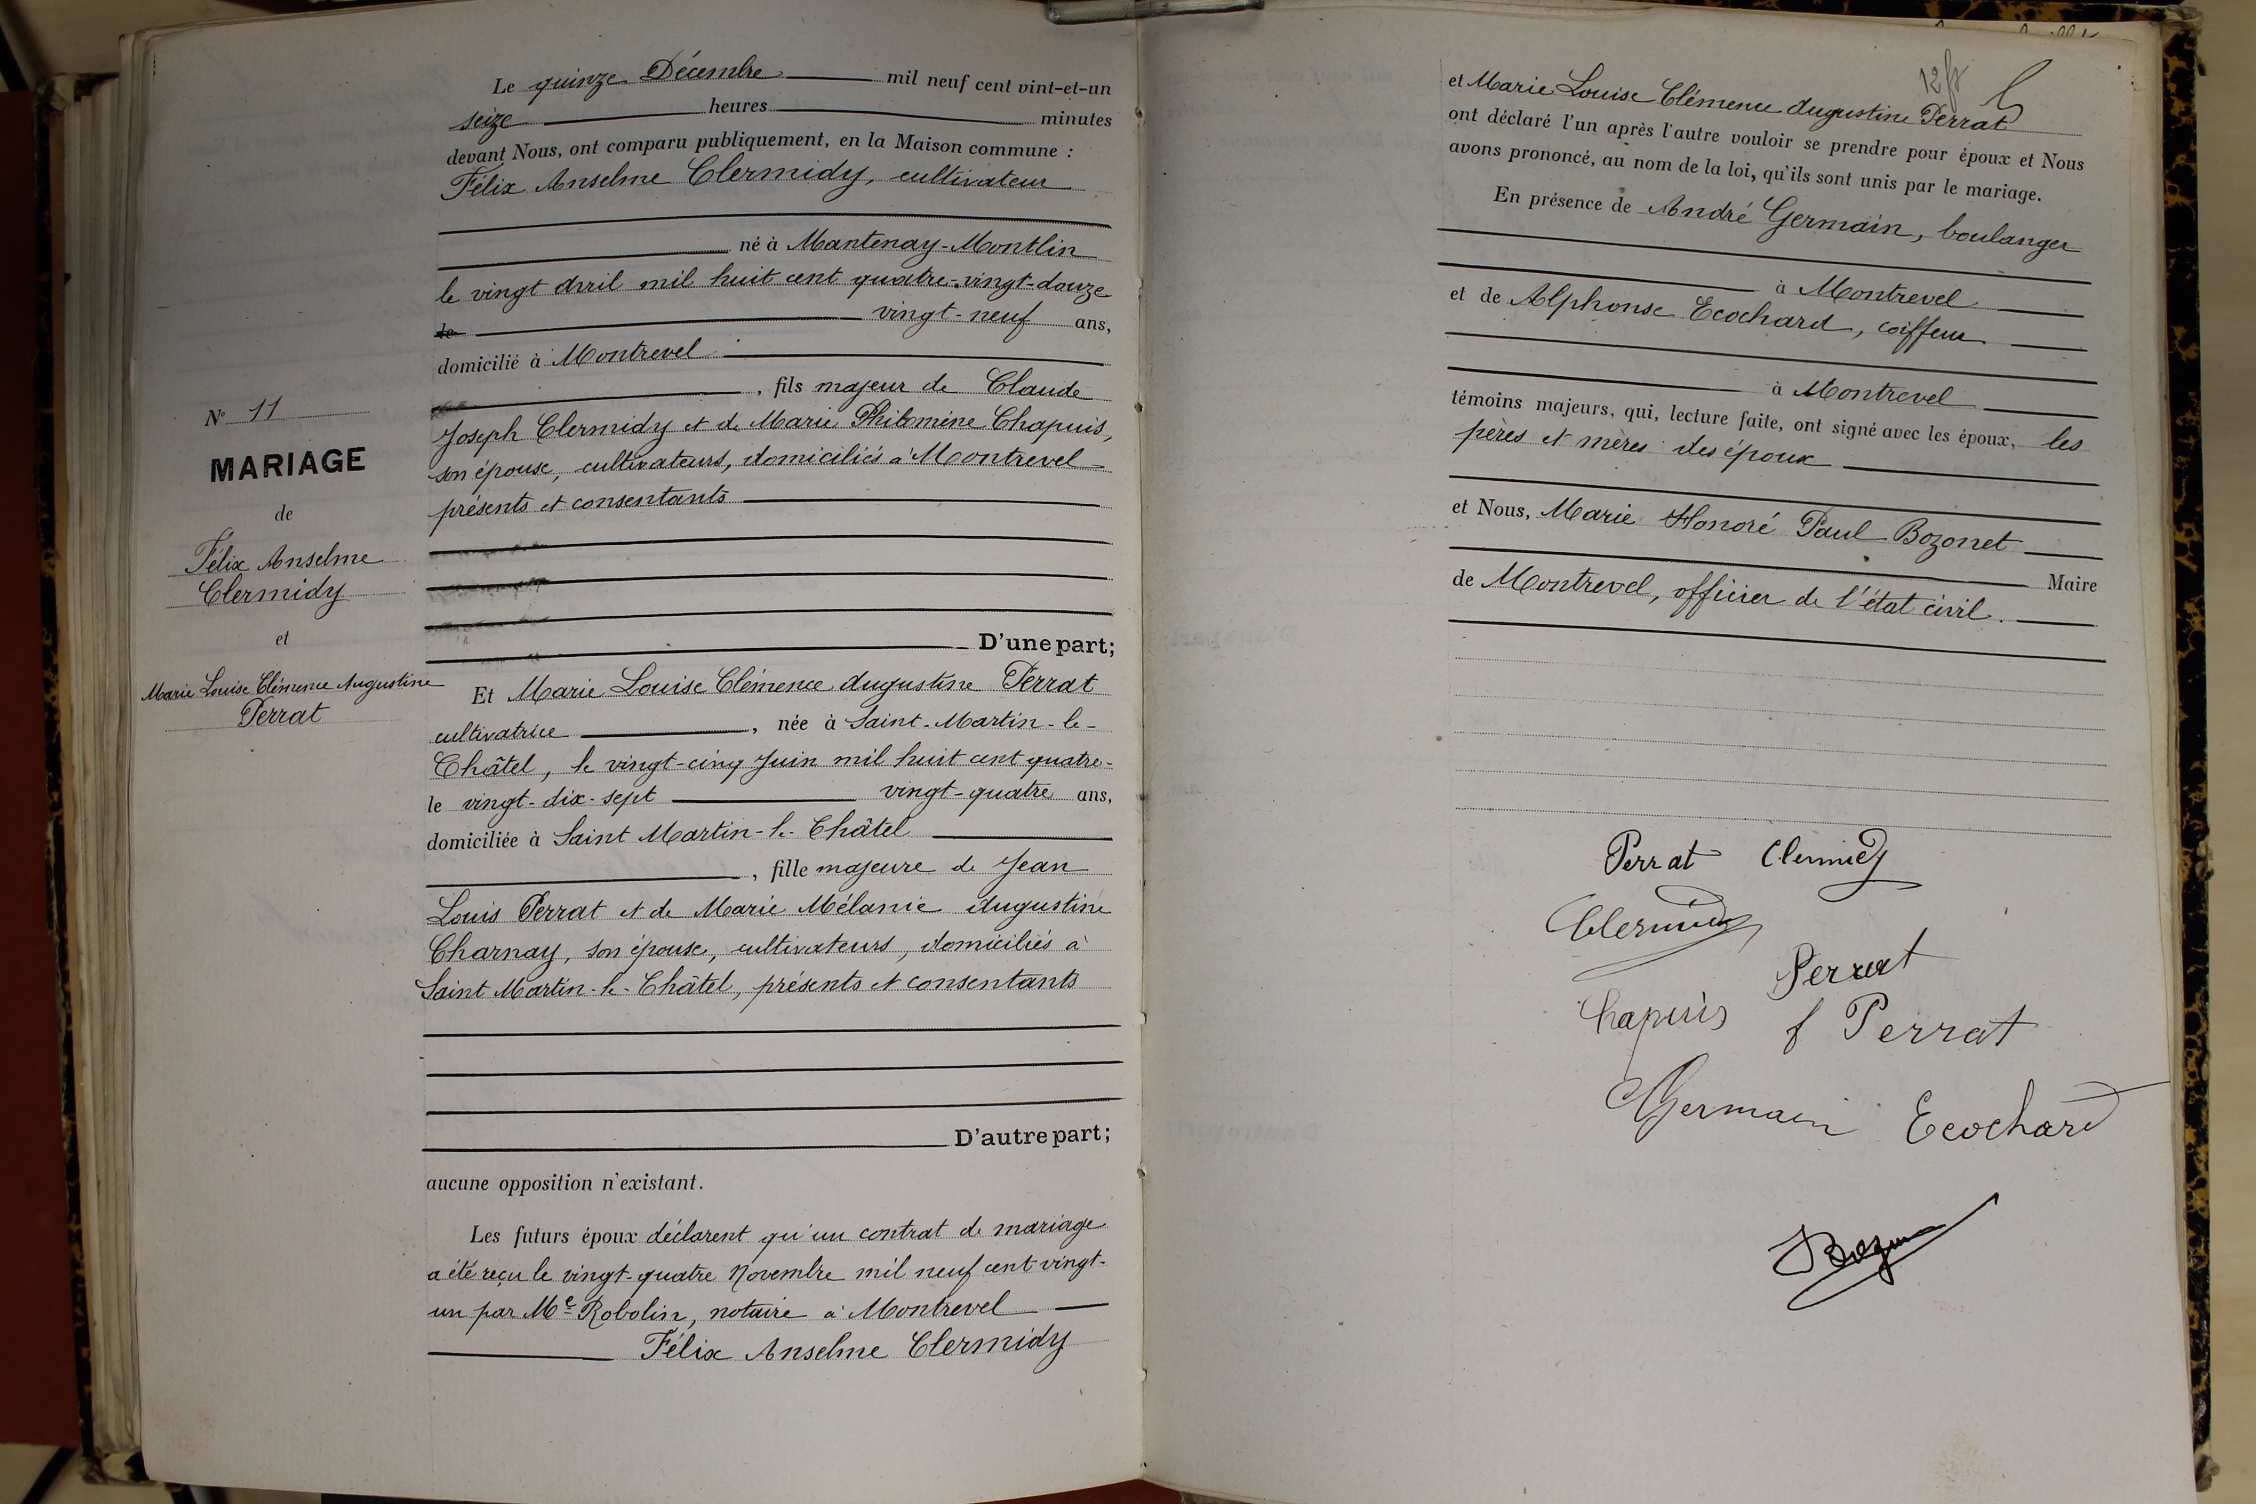 Le quinze Décembre mil neuf cent vint-et-un
seize heures minutes
devant Nous, ont comparu publiquement, en la Maison commune :
Félix Anselme Clermidy, cultivateur
né à Mantenay-Montlin
le vingt Avril mil huit cent quatre-vingt-douze
vingt-neuf ans,
domicilié à Montrevel
, fils majeur de Claude
Joseph Clermidy et de Marie Philomène Chapuis,
son épouse, cultivateurs, domiciliés à Montrevel
présents et consentants
D'une part;
N° 11
MARIAGE
de
Félix Anselme
Clermidy
et
Marie Louise Clémence Augustine
Perrat
Et Marie Louise Clémence Augustine Perrat
cultivatrice , née à Saint-Martin-le-
Châtel, le vingt-cinq Juin mil huit cent quatre-
le vingt-dix-sept vingt-quatre ans,
domiciliée à Saint Martin-le-Châtel
, fille majeure de Jean
Louis Perrat et de Marie Mélanie Augustine
Charnay, son épouse, cultivateurs, domiciliés à
Saint Martin-le-Châtel, présents et consentants
D'autre part;
aucune opposition n'existant.
Les futurs époux déclarent qu'un contrat de mariage
a été reçu le vingt-quatre Novembre mil neuf cent vingt-
un par Me Robolin, notaire à Montrevel
Félix Anselme Clermidy
12
et Marie Louise Clémence Augustine Perrat
ont déclaré l'un après l'autre vouloir se prendre pour époux et Nous
avons prononcé, au nom de la loi, qu'ils sont unis par le mariage.
En présence de André Germain, boulanger
à Montrevel
et de Alphonse Ecochard, coiffeur
à Montrevel
témoins majeurs, qui, lecture faite, ont signé avec les époux, les
pères et mères des époux
et Nous, Marie Honoré Paul Bozonet
Maire
de Montrevel, officier de l'état civil.
Perrat Clermidy
Clermidy
Perrat
Chapuis f Perrat
Germain Ecochard